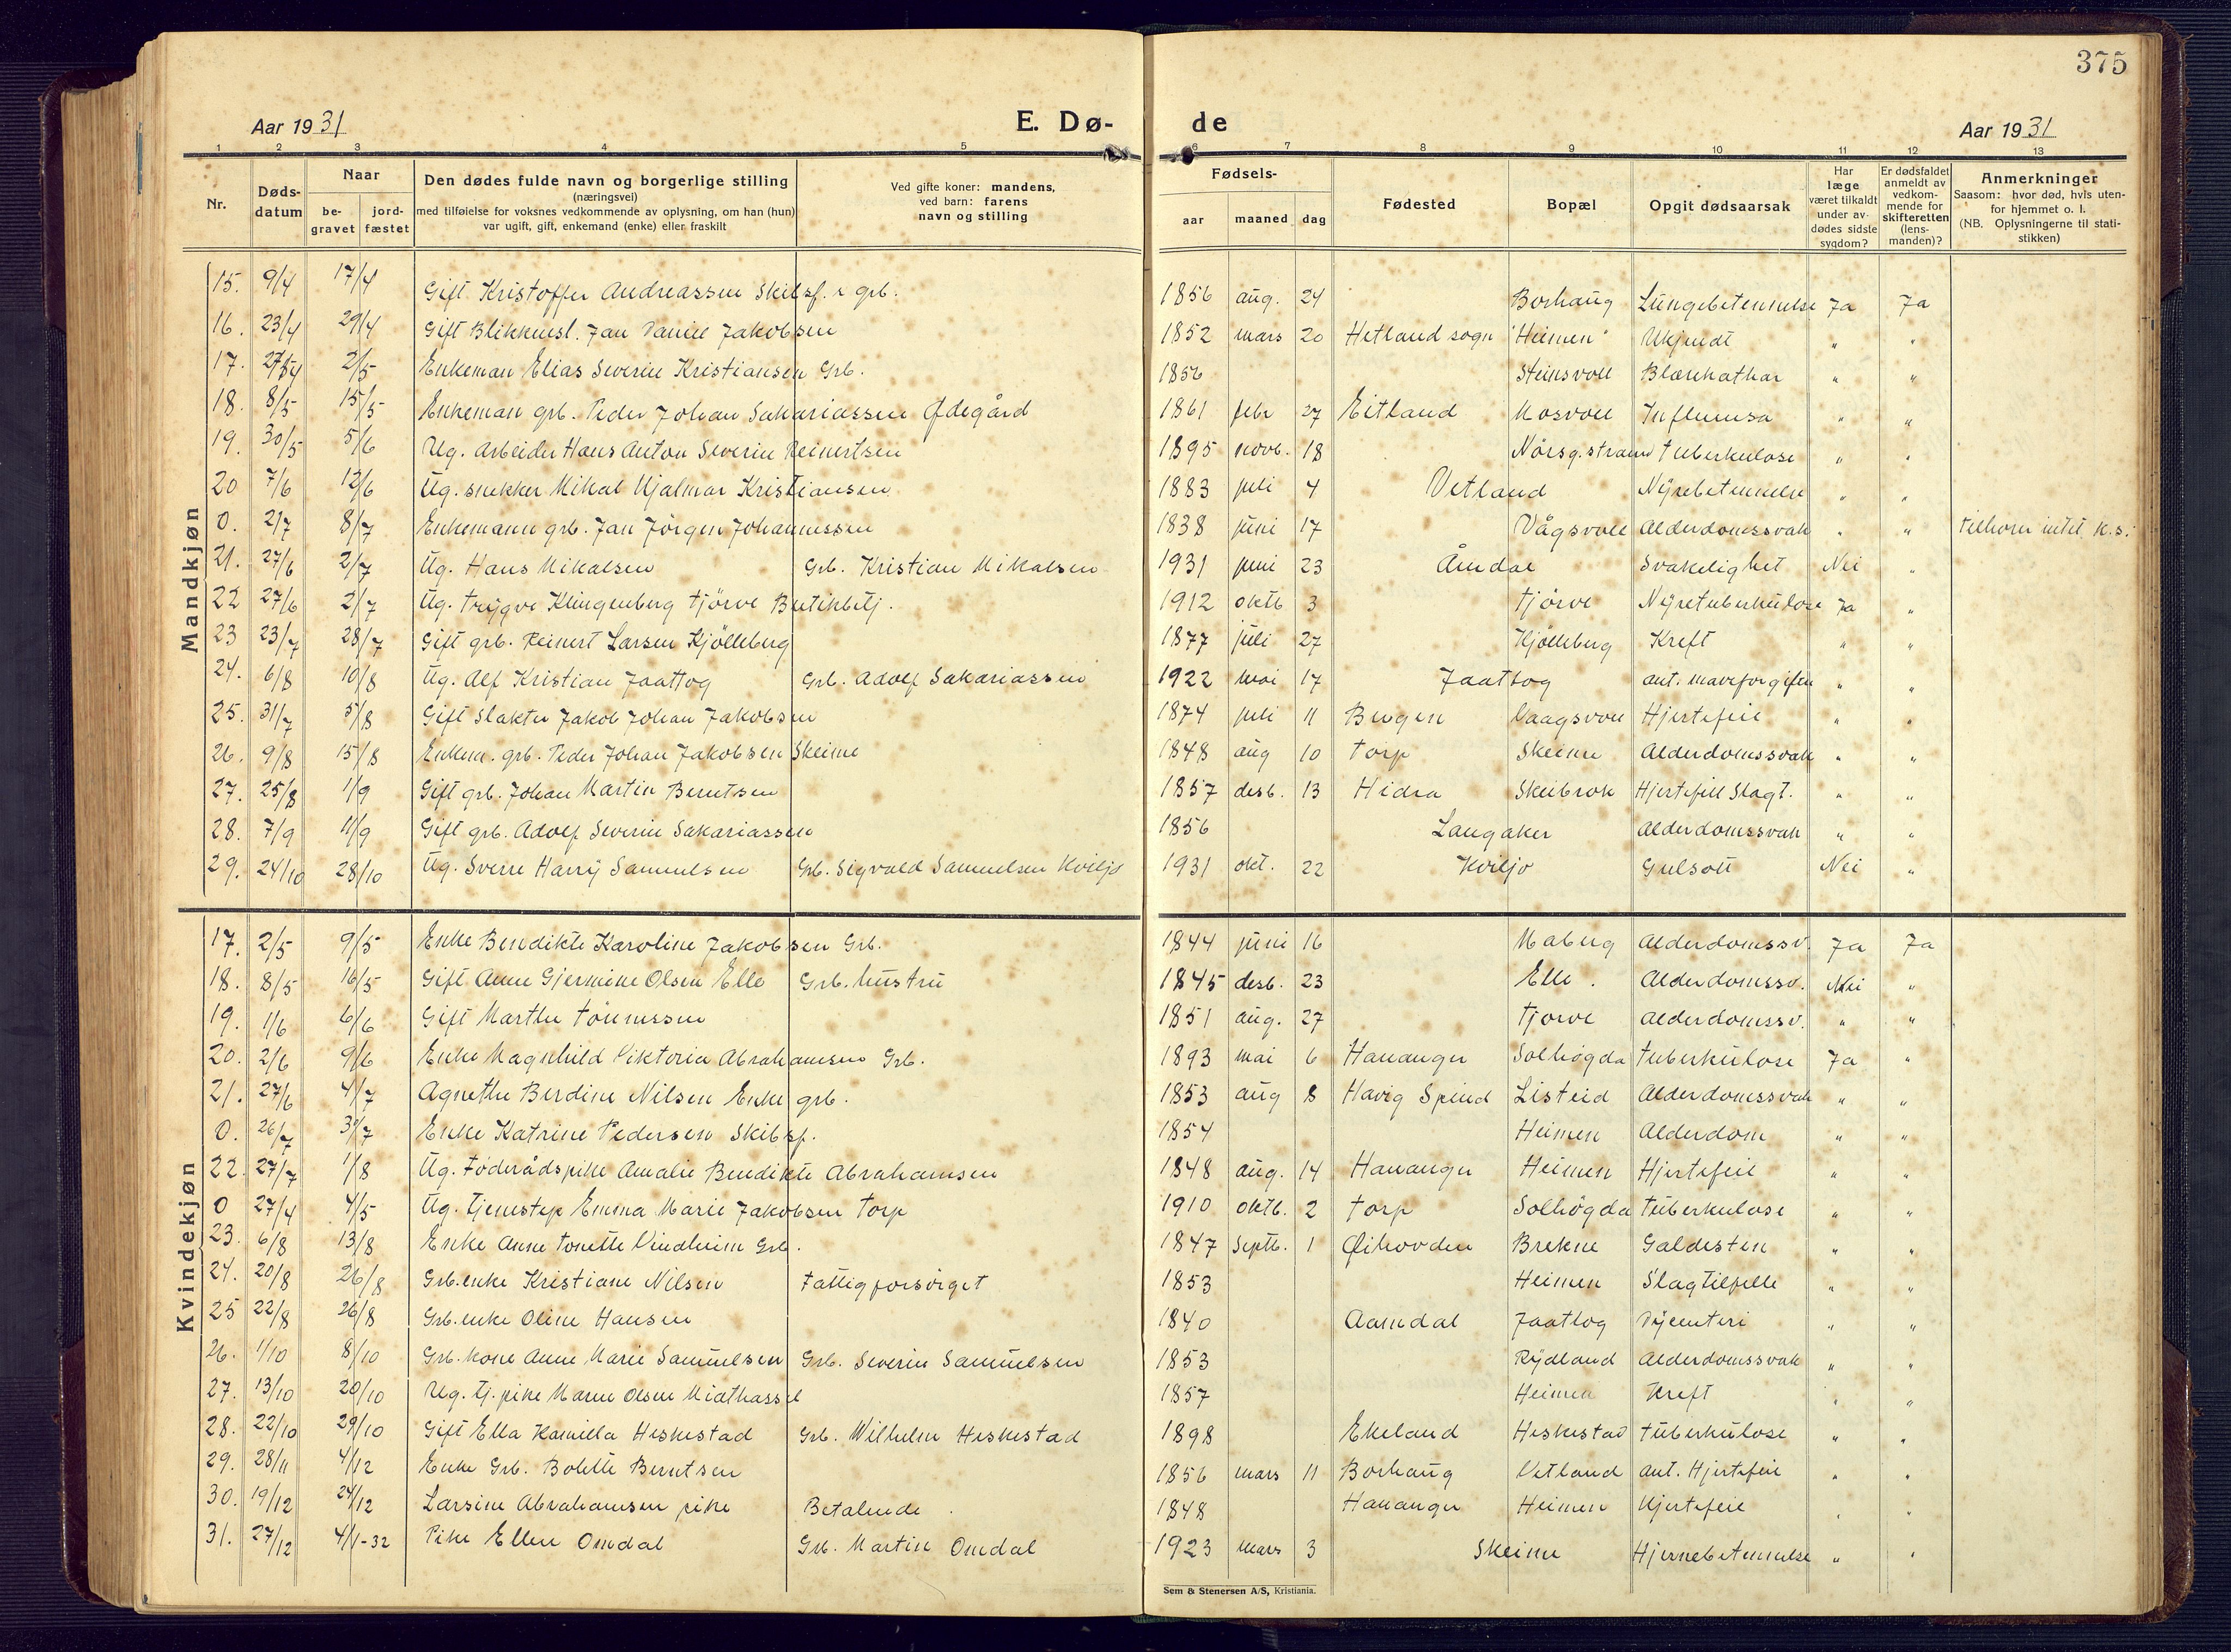 375
Aar 1931
E. Dø-
de
Aar 1931
1 2 3 4 5 6 7 8 9 10 11 12 13
Nr.
Døds-
datum
Naar
be-
gravet
jord-
fæstet
Den dødes fulde navn og borgerlige stilling
(næringsvei)
med tilføielse for voksnes vedkommende av oplysning, om han (hun)
var ugift, gift, enkemand (enke) eller fraskilt
Ved gifte koner: mandens,
ved barn: farens
navn og stilling
Fødsels-
aar maaned dag
Fødested
Bopæl
Opgit dødsaarsak
Har
læge
været tilkaldt
under av-
dødes sidste
sygdom?
Er dødsfaldet
anmeldt av
vedkom-
mende for
skifteretten
(lens-
manden)?
Anmerkninger
Saasom: hvor død, hvis uten-
for hjemmet o. l.
(NB. Oplysningerne til stati-
stikken)
Mandkjøn
15. 9/4 17/4 Gift Kristoffer Andreassen Skibsf. & grb. 1856 aug. 24 Borhaug Lungebetennelse Ja Ja
16. 23/4 29/4 Gift Blikkensl. Jan Daniel Jakobsen 1852 mars 20 Hetland sogn "Heimen" Ukjendt " "
17. 27/4 2/5 Enkeman Elias Severin Kristiansen Grb. 1856 Steinsvoll Blærekathar " "
18. 8/5 15/5 Enkeman grb. Peder Johan Sakariassen Ødegård 1861 febr 27 Eitland Mosvoll Influensa " "
19. 30/5 5/6 Ug. Arbeider Hans Anton Severin Reinertsen 1895 novb. 18 Nørsg.strand Tuberkulose " "
20 7/6 12/6 Ug. snekker Mikal Hjalmar Kristiansen 1883 juli 4 Vetland Nyrebetennelse " "
0. 2/7 8/7 Enkemann grb. Jan Jørgen Johannessen 1838 juni 17 Vågsvoll Alderdomssvak " " tilhører intet k.s.
21. 27/6 2/7 Ug. Hans Mikalsen Grb. Kristian Mikalsen 1931 juni 23 Åmdal Svakelighet Nei "
22 27/6 2/7 Ug. Trygve Klingenberg Tjørve Butikbetj. 1912 oktb 3 Tjørve Nyretuberkulose Ja "
23 23/7 28/7 Gift grb. Reinert Larsen Kjølleberg 1877 juli 27 Kjølleberg Kreft " "
24. 6/8 10/8 Ug. Alf Kristian Jaattog Grb. Adolf Sakariassen 1922 mai 17 Jaattog ant. maveforgiften " "
25. 31/7 5/8 Gift Slakter Jakob Johan Jakobsen 1874 juli 11 Bergen Vaagsvoll Hjertefeil " "
26. 9/8 15/8 Enkem. grb. Peder Johan Jakobsen Skeime 1848 aug 10 Torp Skeime Alderdomssvak " "
27. 25/8 1/9 Gift grb. Johan Martin Berntsen 1857 desb. 13 Hidra Skeibrok Hjertefeil Slagt. " "
28. 7/9 11/9 Gift grb. Adolf Severin Sakariassen 1856 Langaker Alderdomssvak " "
29. 24/10 28/10 Ug. Sverre Harry Samuelsen Grb. Sigvald Samuelsen Kviljo 1931 okt. 22 Kviljo Gulsott Nei "
Kvindekjøn
17. 2/5 9/5 Enke Bendikte Karoline Jakobsen Grb. 1844 juni 16 Maberg Alderdomssv. Ja Ja
18. 8/5 16/5 Gift Anne Gjermine Olsen Elle Grb. hustru 1845 desb. 23 Elle . Alderdomssv. Nei "
19. 1/6 6/6 Gift Marthe Tønnessen 1851 aug. 27 Tjørve Alderdomssv. " "
20. 2/6 9/6 Enke Magnhild Viktoria Abrahamsen Grb. 1893 mai 6 Hananger Solhøgda Tuberkulose Ja "
21. 27/6 4/7 Agnethe Berdine Nilsen Enke grb. 1853 aug 8 Havig Spind Listeid Alderdomssvak " "
0. 26/7 30/7 Enke Katrine Pedersen Skibsf. 1854 Heimen Alderdom " "
22. 27/7 1/8 Ug. Føderådspike Amalie Bendikte Abrahamsen 1848 aug. 14 Hananger Heimen Hjertefeil " "
0 27/4 4/5 Ug. Tjenestep Emma Marie Jakobsen Torp 1910 oktb. 2 Torp Solhøgda Tuberkulose " "
23. 6/8 13/8 Enke Anne Tonette Vindheim Grb. 1847 septb. 1 Øihovden Brekne Galdesten " "
24. 20/8 26/8 Grb.enke Kristiane Nilsen Fattigforsørget 1853 Heimen Slagtilfelle " "
25 22/8 26/8 Grb.enke Oline Hansen 1840 Aamdal Jaattog Dysenteri " "
26. 1/10 8/10 Grb.kone Anne Marie Samuelsen Grb. Severin Samuelsen 1853 Rydland Alderdomssvak " "
27. 13/10 20/10 Ug. tj.pike Maren Olsen Midthassel 1857 Heimen Kreft " "
28. 22/10 29/10 Gift Ella Kamilla Heskestad Grb. Wilhelm Heskestad 1898 Ekeland Heskestad Tuberkulose " "
29. 28/11 4/12 Enke Grb. Bolette Berntsen 1856 mars 11 Borhaug Vetland Ant. Hjertefeil " "
30. 19/12 24/12 Larsine Abrahamsen pike Betalende 1848 Hananger Heimen Hjertefeil " "
31. 27/12 4/1-32 Pike Ellen Omdal Grb. Martin Omdal 1923 mars 3 Skeime Hjernebetennelse " "
Sem & Stenersen A/S, Kristiania.